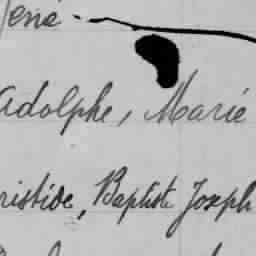 René
Adolphe, Marie
Aristide, Baptiste Joseph